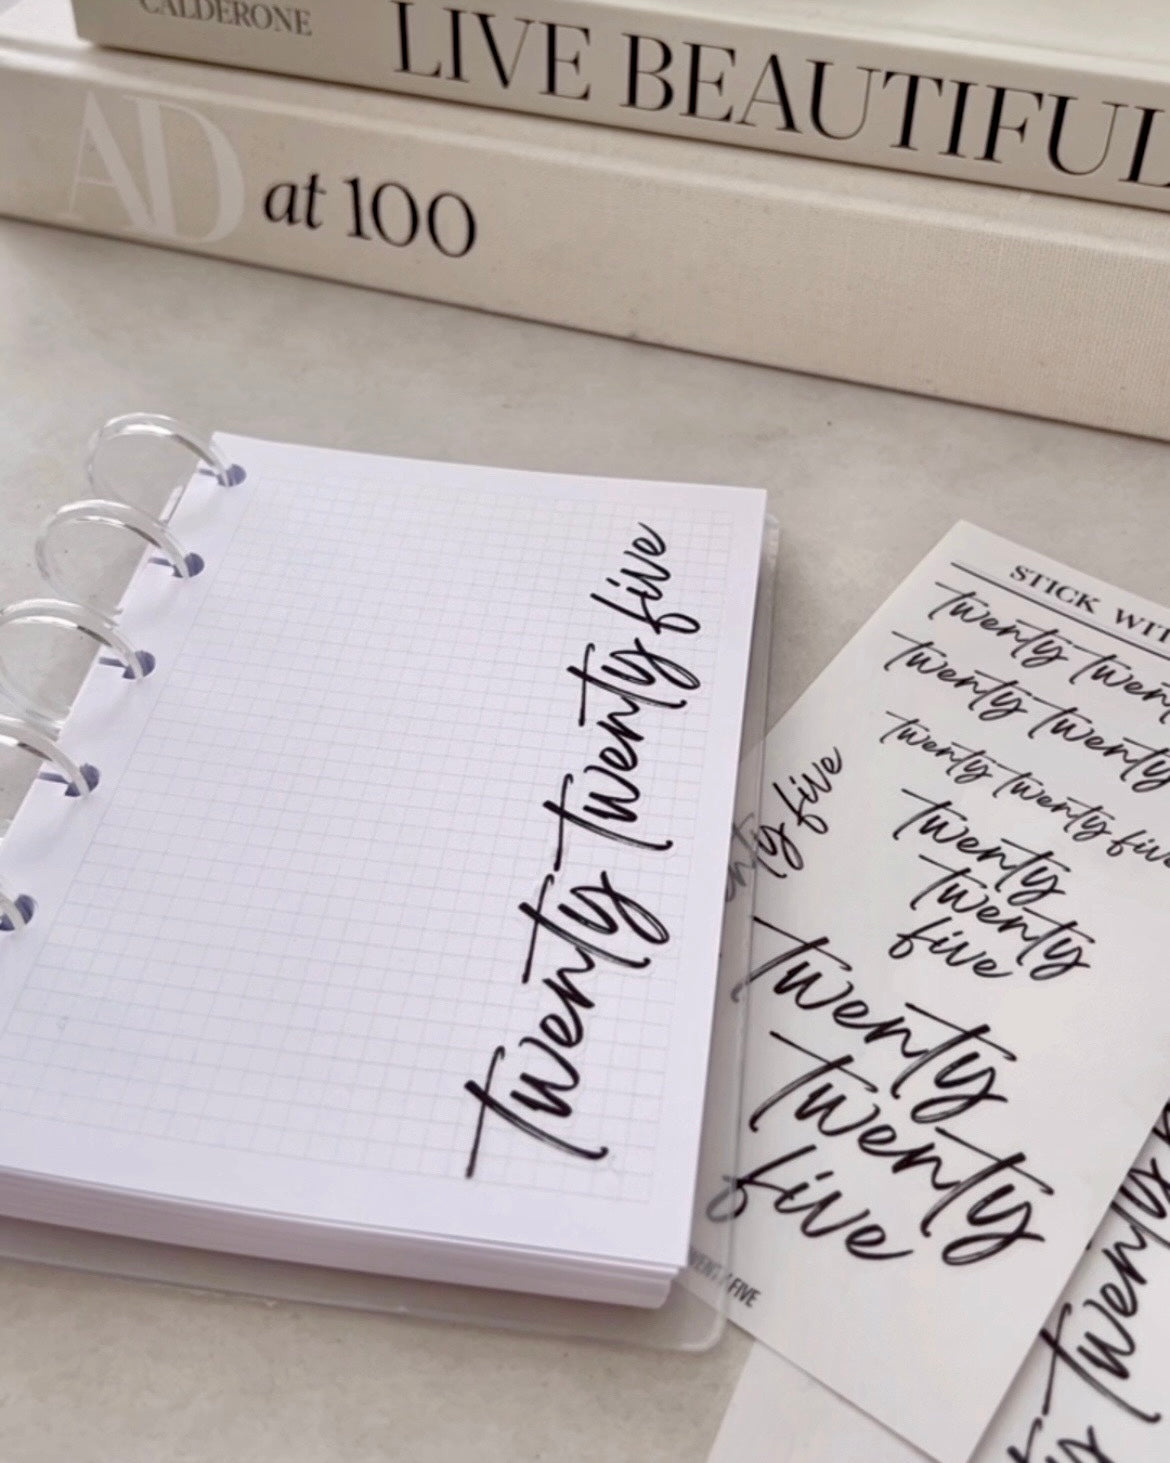 CALDERONE LIVE BEAUTIFUL
AD at 100
twenty twenty five
STICK
twenty
twenty twenty
twenty twenty five
twenty
twenty
five
five
twenty
twenty
five
FIVE
twenty